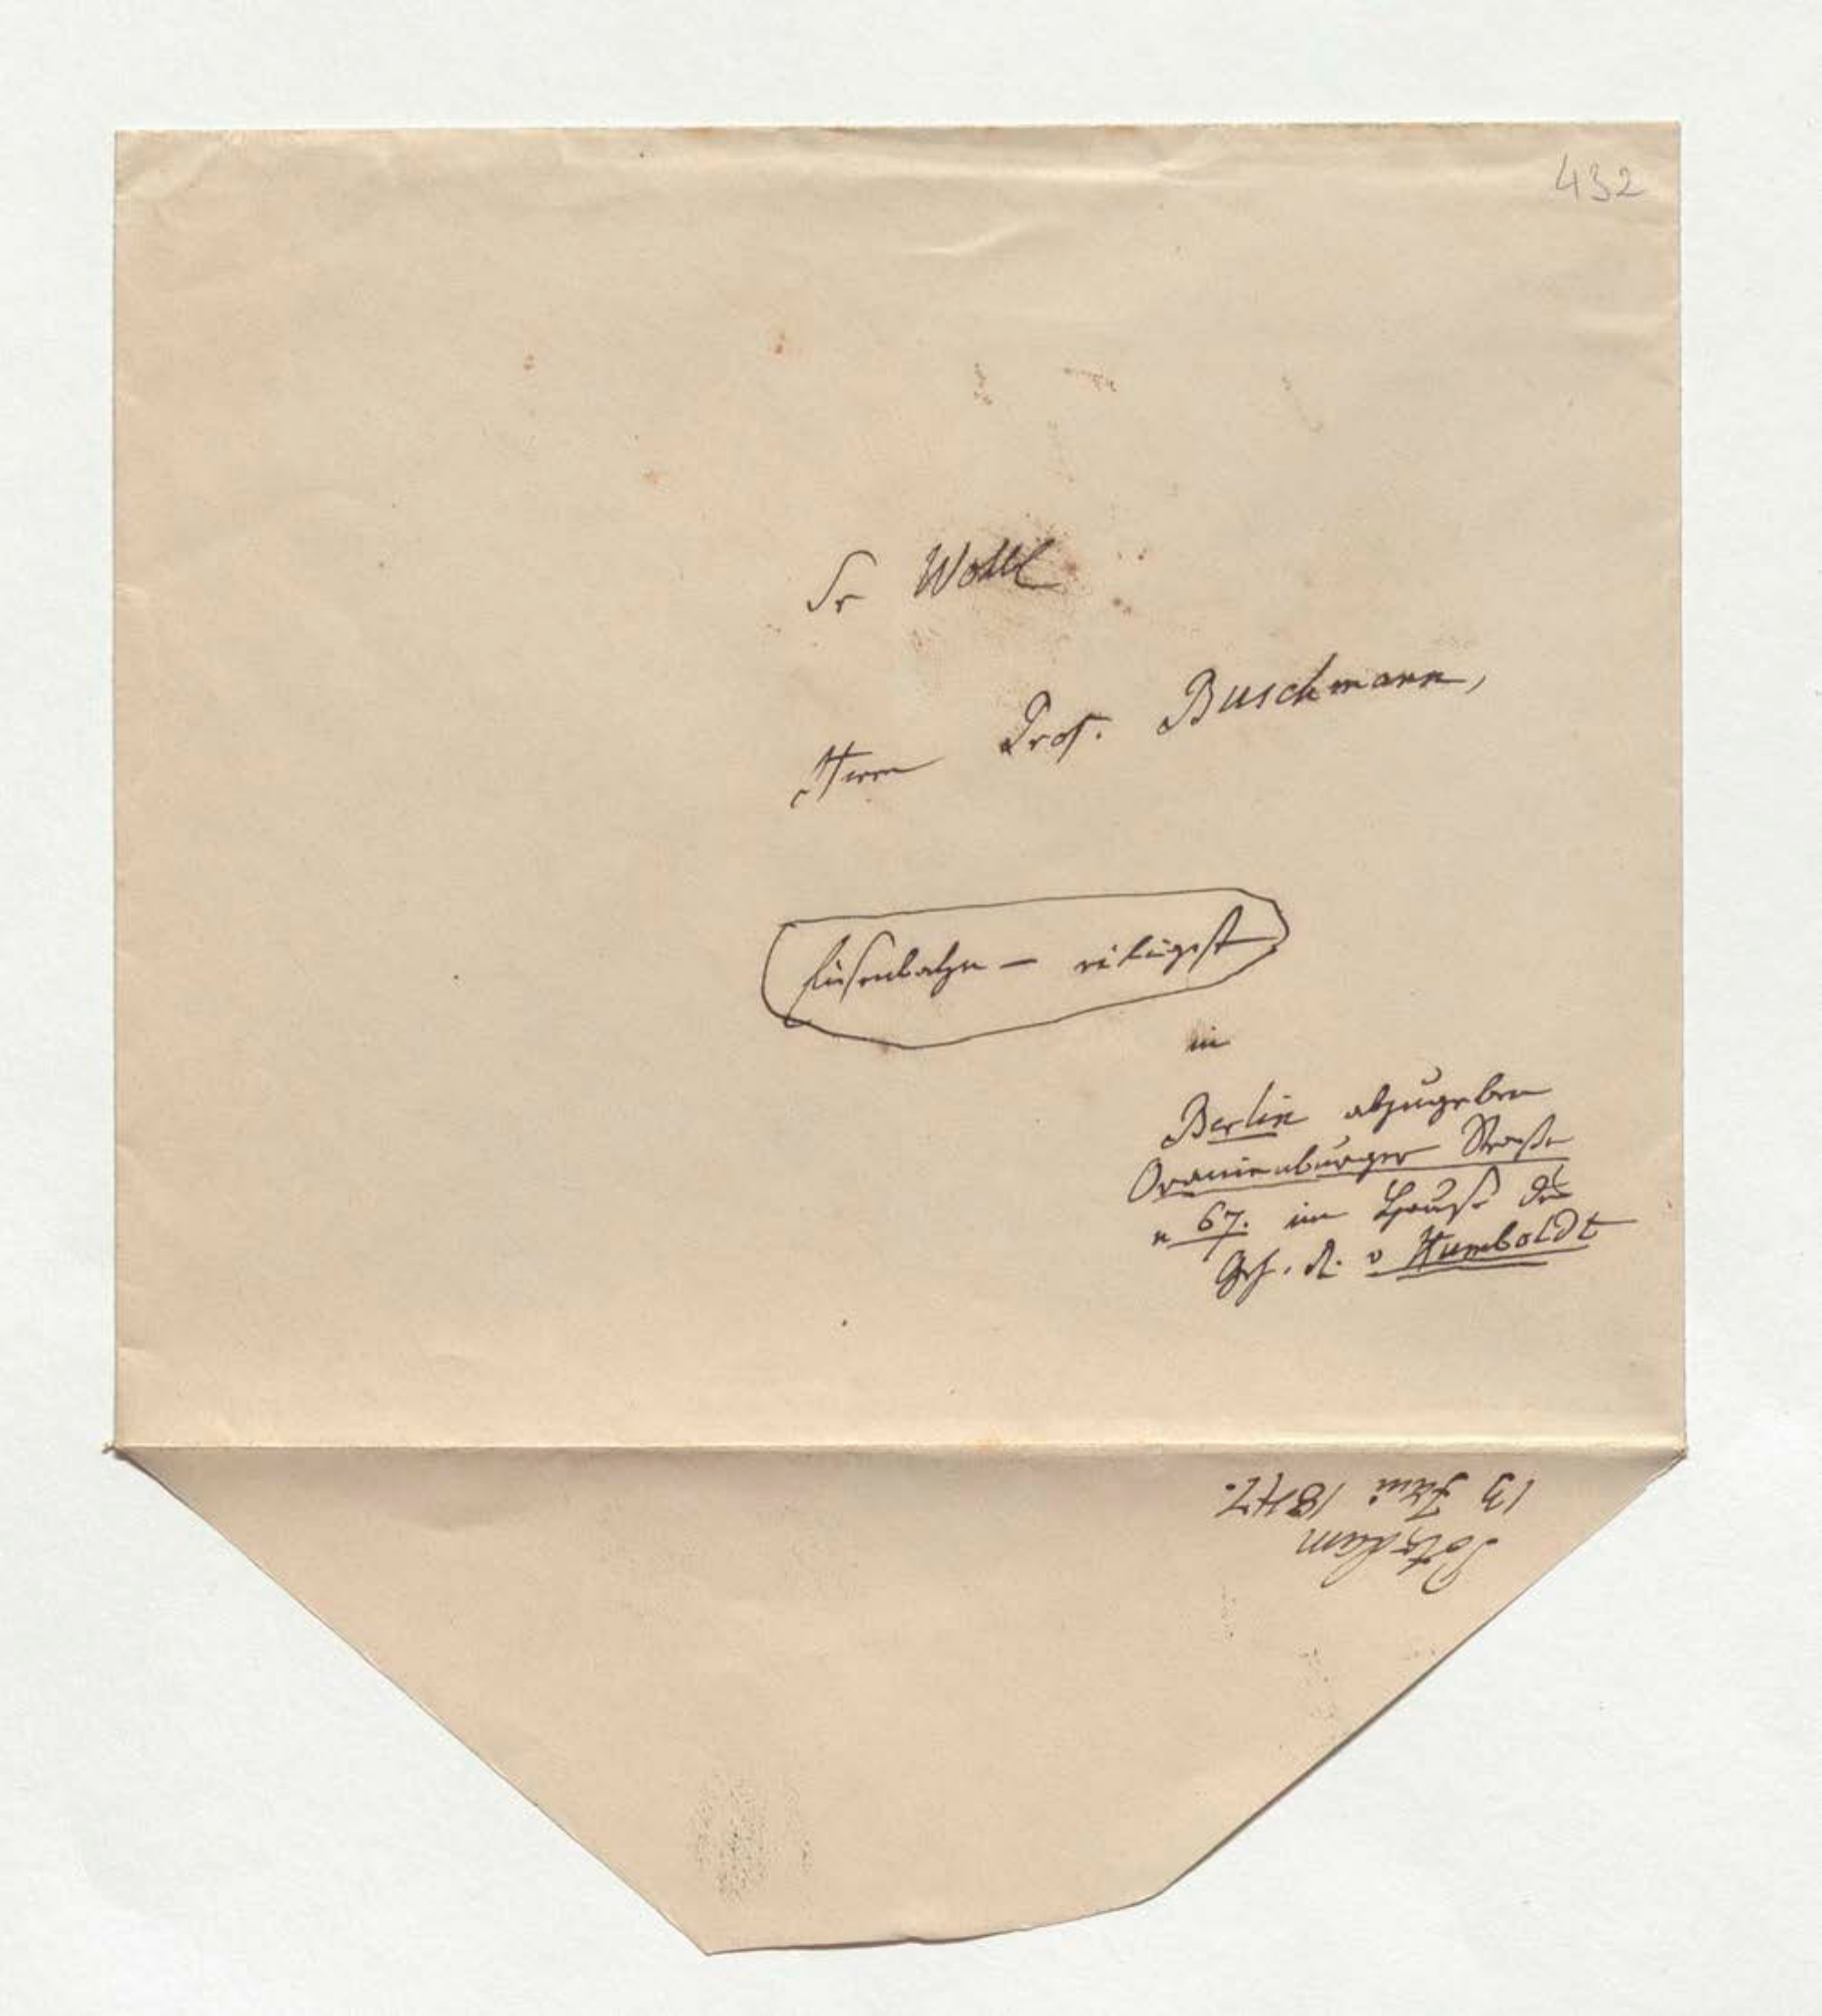 432
Sr Wohl
Herrn Prof. Buschmann,
Eisenbahn – eiligst
in
Berlin abzugeben
Oranienburger Straße
n 67. im Hause des
Geh. R. v Humboldt
Potsdam
13 Juni 1847.